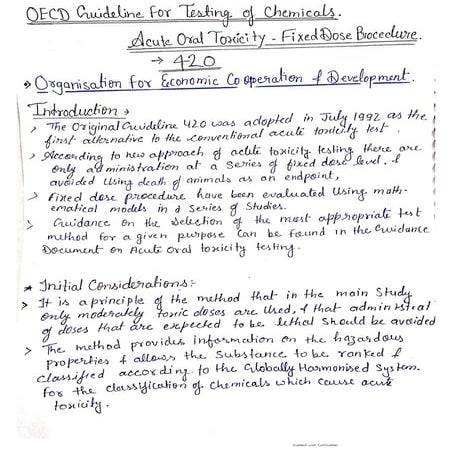 OECD Guideline for Testing of Chemicals.
Acute Oral Toxicity - Fixed Dose Procedure.
→ 420
→ Organisation for Economic Cooperation & Development.
Introduction →
> The Original Guideline 420 was adopted in July 1992 as the
first alternative to the conventional acute toxicity test.
> According to new approach of acute toxicity testing there are
only administration at a series of fixed dose level. &
avoided using death of animals as an endpoint,
> Fixed dose procedure have been evaluated using math-
ematical models in a series of studies.
> Guidance on the selection of the most appropriate test
method for a given purpose can be found in the Guidance
Document on Acute Oral toxicity testing.
* Initial Considerations:-
> It is a principle of the method that in the main study
only moderately toxic doses are used, & that administrat
of doses that are expected to be lethal should be avoided
> The method provides information on the hazardous
properties & allows the substance to be ranked &
classified according to the Globally Harmonised System.
for the classification of chemicals which cause acute
toxicity.
Scanned with CamScanner